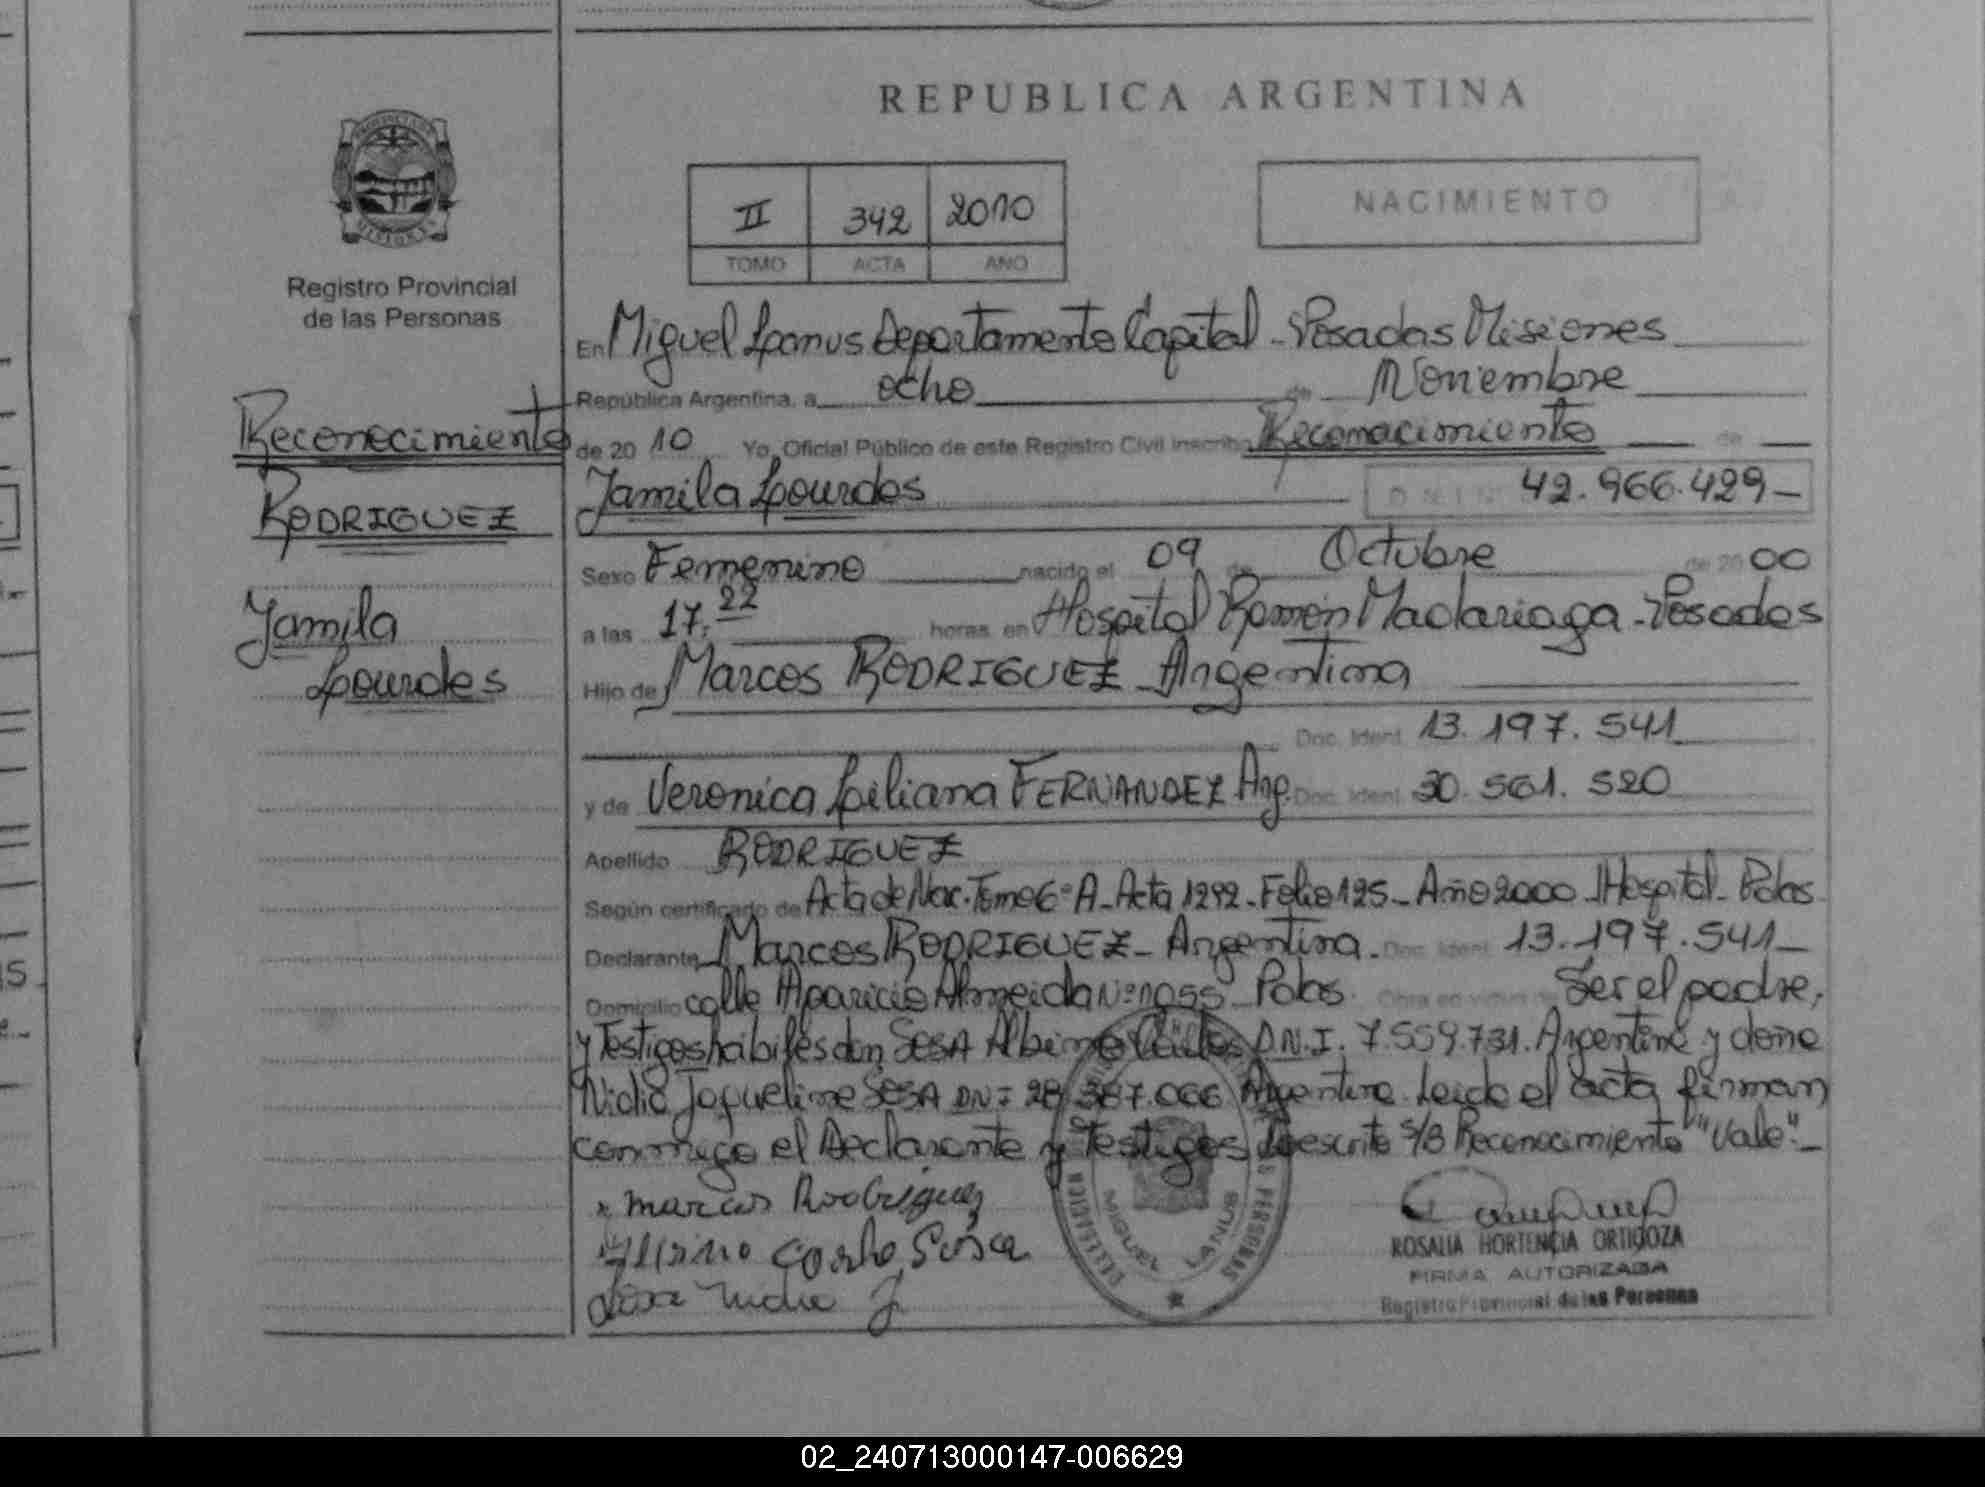 REPUBLICA ARGENTINA
PROVINCIA DE MISIONES
Registro Provincial
de las Personas
II 342 2010
TOMO ACTA AÑO
NACIMIENTO
Reconocimiento
RODRIGUEZ
Jamila
Lourdes
En Miguel Lanus Departamento Capital - Posadas Misiones
República Argentina, a ocho de Noviembre
de 20 10 Yo, Oficial Público de este Registro Civil inscribo Reconocimiento de
Jamila Lourdes 42.966.429-
Sexo Femenino nacido el 09 de Octubre de 20 00
a las 17:22 horas en Hospital Ramón Madariaga - Posadas
Hijo de Marcos RODRIGUEZ - Argentina
Doc. Ident. 13.197.541
y de Veronica Liliana FERNANDEZ Arg. Doc. Ident. 30.561.520
Apellido RODRIGUEZ
Según certificado de Acta de Nac. Tomo 6º A - Acta 1292 - Folio 125 - Año 2000 - Hospital - Pdas.
Declarante Marcos RODRIGUEZ - Argentina - Doc. Ident. 13.197.541-
Domicilio calle Aparicio Almeida Nº 1055 Pdas. Obra en virtud de Ser el padre,
y Testigos hábiles don SOSA Albino Carlos D.N.I. 7.559.731. Argentino y doña
Nidia Jaqueline SOSA DNI 28.387.066 Argentina. Leido el acta firman
conmigo el Declarante y Testigos Lo escrito s/B Reconocimiento "Vale".-
Marcos Rodriguez
Albino Carlo Sosa
Sosa Nidia J
DELEGACION
MIGUEL LANUS
ROSALIA HORTENCIA ORTIGOZA
FIRMA AUTORIZADA
Registro Provincial de las Personas
02_240713000147-006629